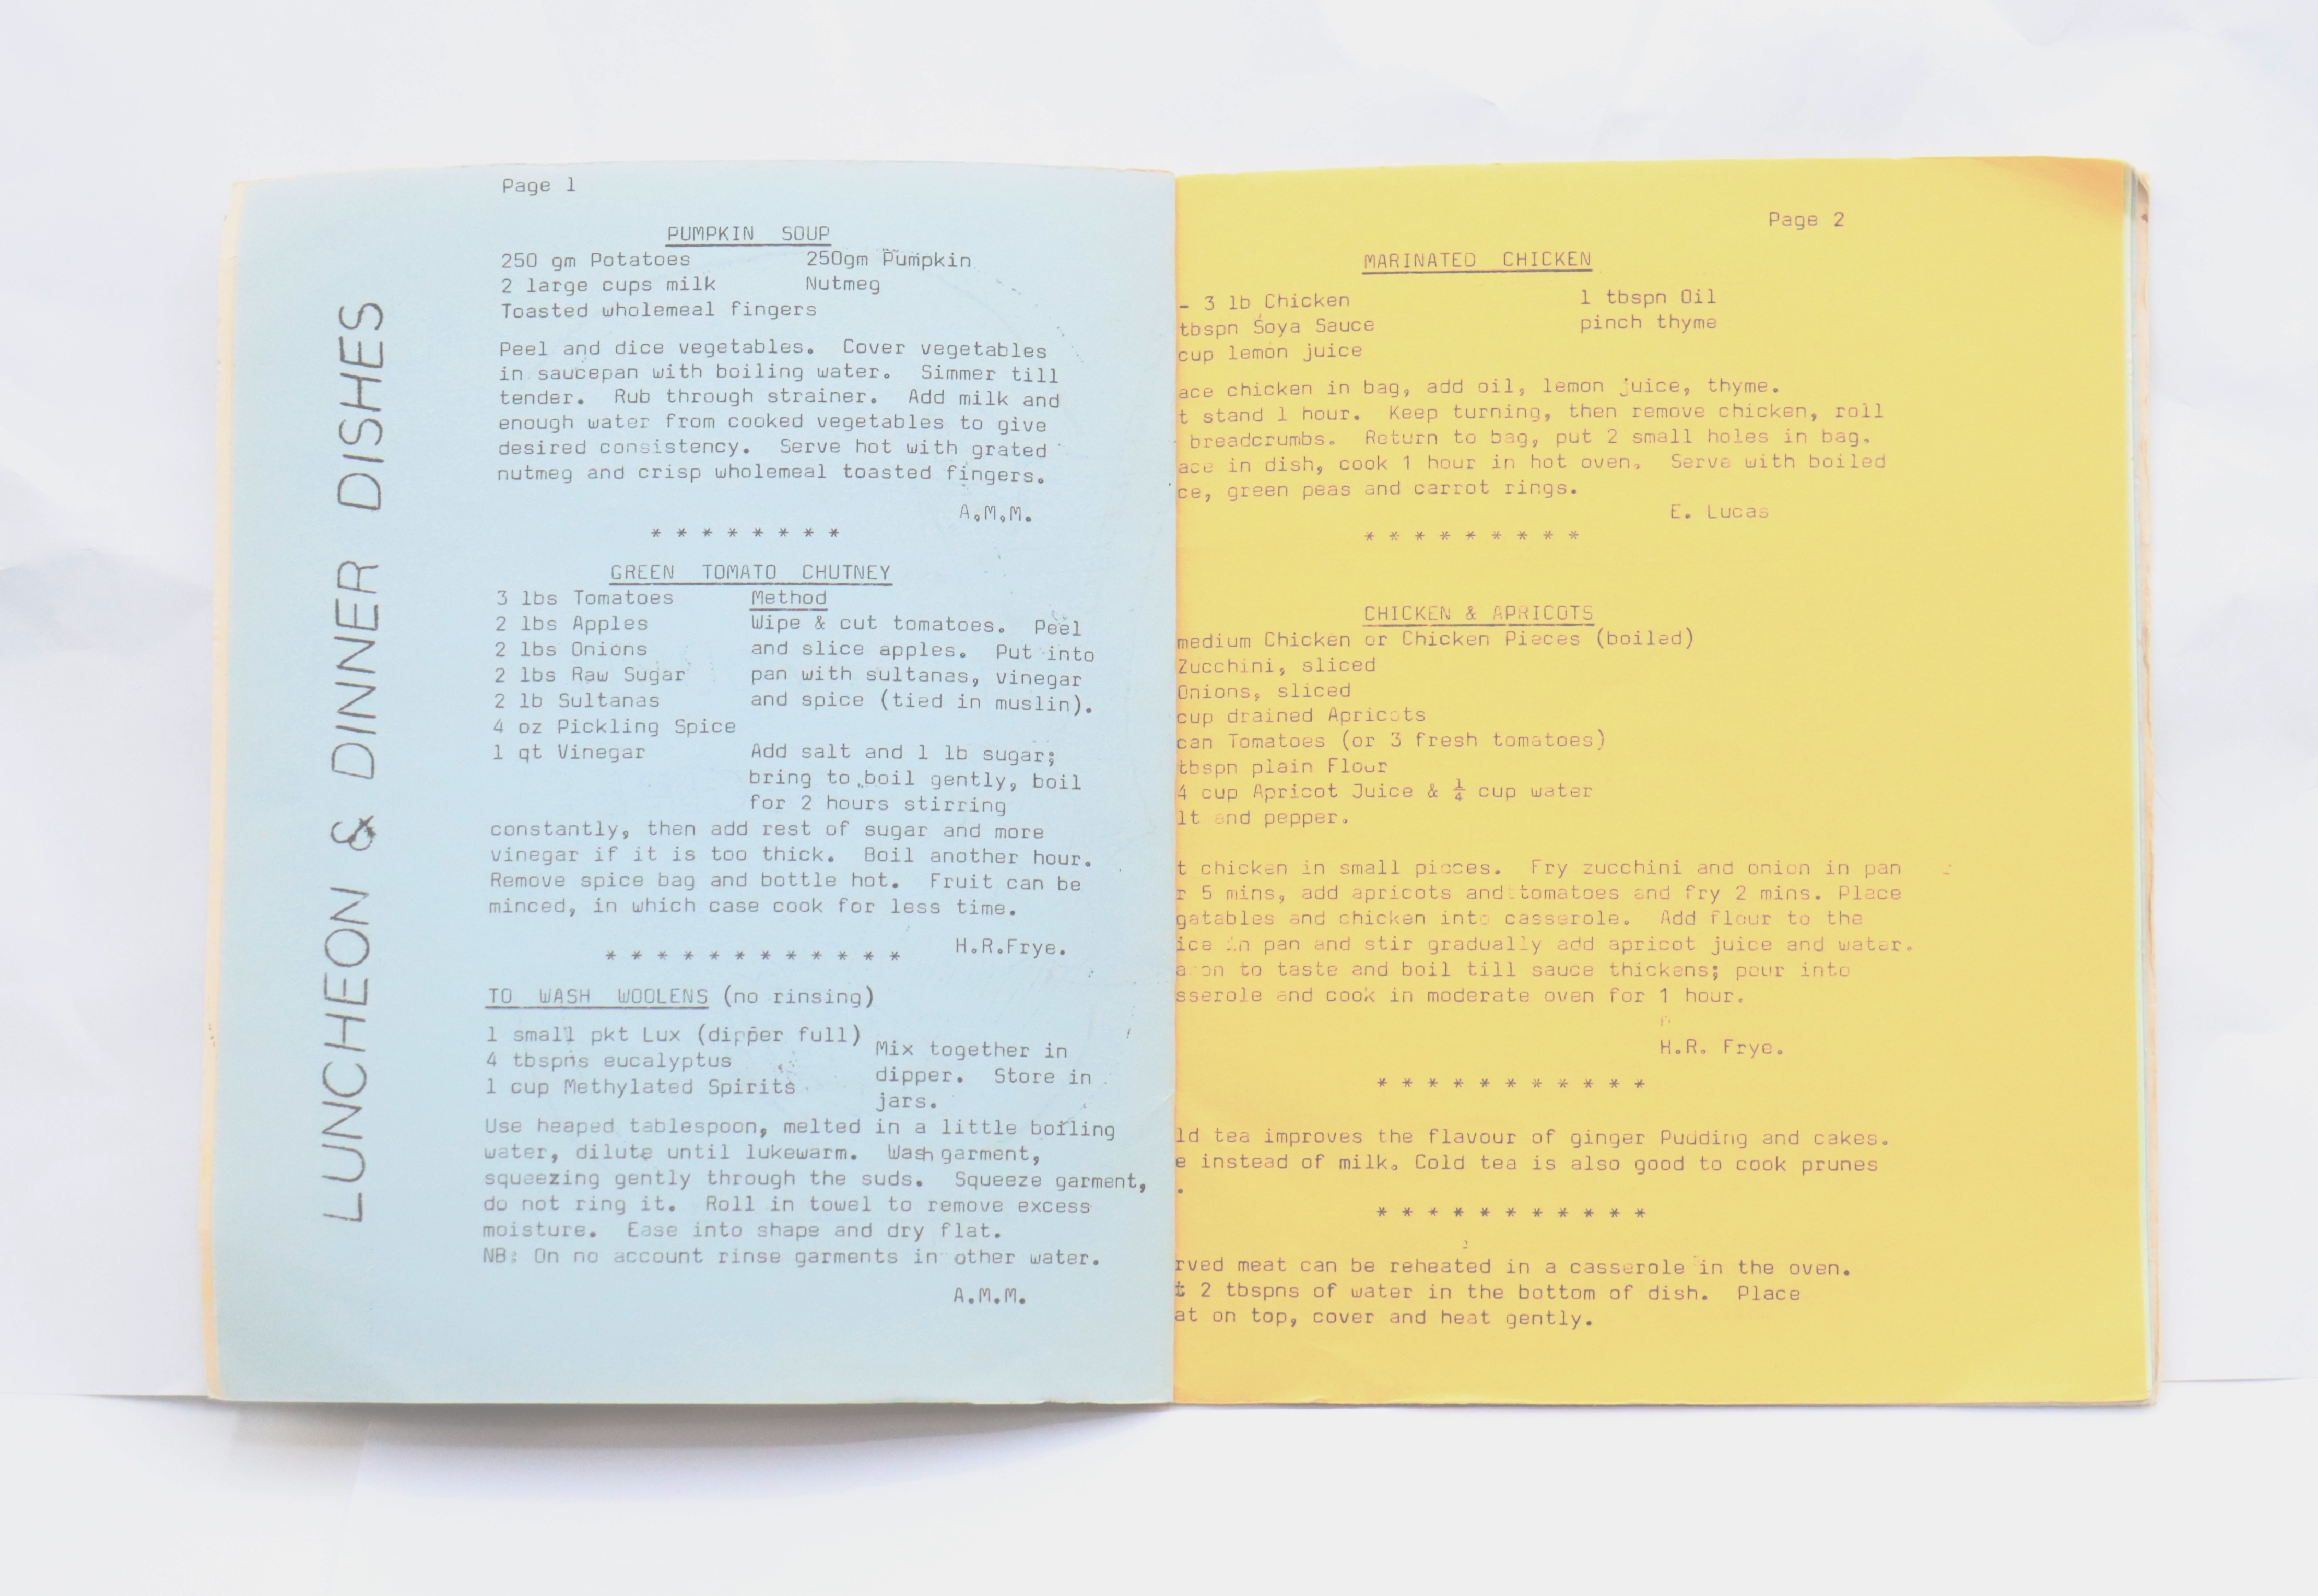 LUNCHEON & DINNER DISHES
Page 1
PUMPKIN SOUP
250 gm Potatoes 250gm Pumpkin
2 large cups milk Nutmeg
Toasted wholemeal fingers
Peel and dice vegetables. Cover vegetables
in saucepan with boiling water. Simmer till
tender. Rub through strainer. Add milk and
enough water from cooked vegetables to give
desired consistency. Serve hot with grated
nutmeg and crisp wholemeal toasted fingers.
A.M.M.
* * * * * * * *
GREEN TOMATO CHUTNEY
3 lbs Tomatoes Method
2 lbs Apples Wipe & cut tomatoes. Peel
2 lbs Onions and slice apples. Put into
2 lbs Raw Sugar pan with sultanas, vinegar
2 lb Sultanas and spice (tied in muslin).
4 oz Pickling Spice
1 qt Vinegar Add salt and 1 lb sugar;
bring to boil gently, boil
for 2 hours stirring
constantly, then add rest of sugar and more
vinegar if it is too thick. Boil another hour.
Remove spice bag and bottle hot. Fruit can be
minced, in which case cook for less time.
H.R.Frye.
* * * * * * * * * * * *
TO WASH WOOLENS (no rinsing)
1 small pkt Lux (dipper full)
4 tbspns eucalyptus
1 cup Methylated Spirits
Mix together in
dipper. Store in
jars.
Use heaped tablespoon, melted in a little boiling
water, dilute until lukewarm. Wash garment,
squeezing gently through the suds. Squeeze garment,
do not ring it. Roll in towel to remove excess
moisture. Ease into shape and dry flat.
NB: On no account rinse garments in other water.
A.M.M.
Page 2
MARINATED CHICKEN
- 3 lb Chicken 1 tbspn Oil
tbspn Soya Sauce pinch thyme
cup lemon juice
ace chicken in bag, add oil, lemon juice, thyme.
t stand 1 hour. Keep turning, then remove chicken, roll
breadcrumbs. Return to bag, put 2 small holes in bag.
ace in dish, cook 1 hour in hot oven. Serve with boiled
ce, green peas and carrot rings.
E. Lucas
* * * * * * * * *
CHICKEN & APRICOTS
medium Chicken or Chicken Pieces (boiled)
Zucchini, sliced
Onions, sliced
cup drained Apricots
can Tomatoes (or 3 fresh tomatoes)
tbspn plain Flour
4 cup Apricot Juice & ¼ cup water
lt and pepper.
t chicken in small pieces. Fry zucchini and onion in pan
r 5 mins, add apricots and tomatoes and fry 2 mins. Place
gatables and chicken into casserole. Add flour to the
ice in pan and stir gradually add apricot juice and water.
a on to taste and boil till sauce thickens; pour into
sserole and cook in moderate oven for 1 hour.
H.R. Frye.
* * * * * * * * * * *
ld tea improves the flavour of ginger Pudding and cakes.
e instead of milk. Cold tea is also good to cook prunes
.
* * * * * * * * * * *
rved meat can be reheated in a casserole in the oven.
t 2 tbspns of water in the bottom of dish. Place
at on top, cover and heat gently.